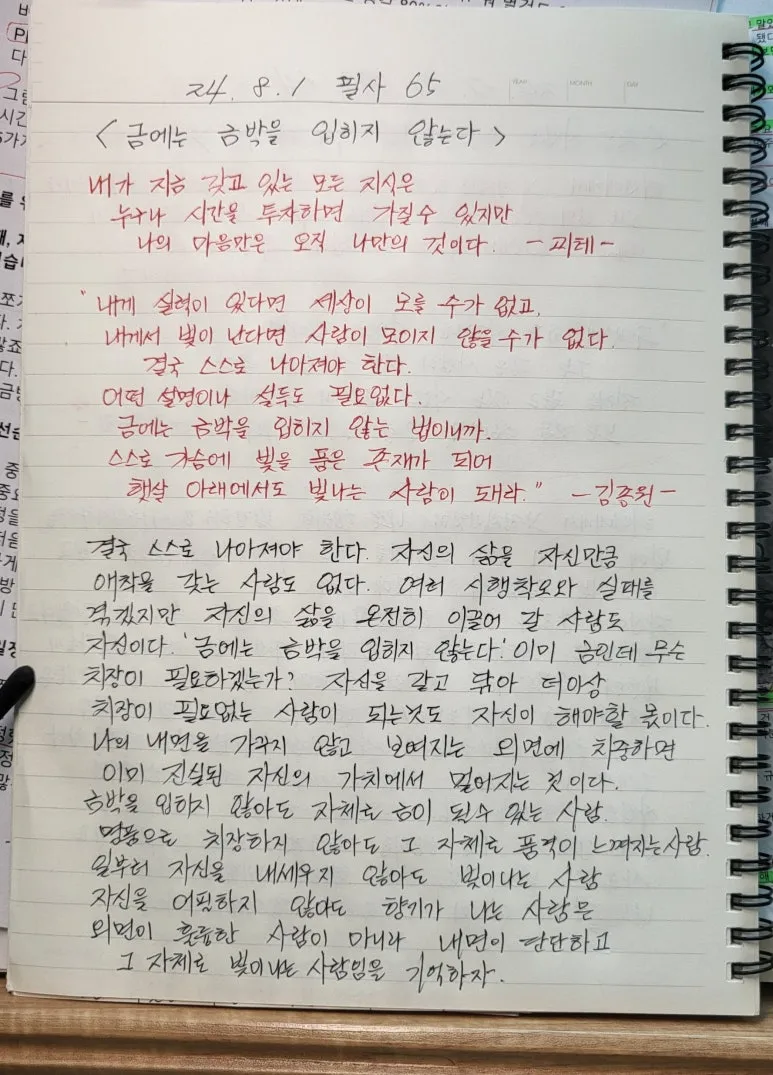 YEAR MONTH DAY
24. 8. 1 필사 65
< 금에는 금박을 입히지 않는다 >
내가 지금 갖고 있는 모든 지식은
누구나 시간을 투자하면 가질수 있지만
나의 마음만은 오직 나만의 것이다. - 괴테 -
"내게 실력이 있다면 세상이 모를 수가 없고,
내게서 빛이 난다면 사람이 모이지 않을 수가 없다.
결국 스스로 나아져야 한다.
어떤 설명이나 설득도 필요없다.
금에는 금박을 입히지 않는 법이니까.
스스로 가슴에 빛을 품은 존재가 되어
햇살 아래에서도 빛나는 사람이 돼라." - 김종원 -
결국 스스로 나아져야 한다. 자신의 삶을 자신만큼
애착을 갖는 사람도 없다. 여러 시행착오와 실패를
겪겠지만 자신의 삶을 온전히 이끌어 갈 사람도
자신이다. '금에는 금박을 입히지 않는다.' 이미 금인데 무슨
치장이 필요하겠는가? 자신을 갈고 닦아 더이상
치장이 필요없는 사람이 되는것도 자신이 해야할 몫이다.
나의 내면을 가꾸지 않고 보여지는 외면에 치중하면
이미 진실된 자신의 가치에서 멀어지는 것이다.
금박을 입히지 않아도 자체로 금이 될수 있는 사람.
명품으로 치장하지 않아도 그 자체로 품격이 느껴지는 사람.
일부러 자신을 내세우지 않아도 빛이나는 사람
자신을 어필하지 않아도 향기가 나는 사람은
외면이 훌륭한 사람이 아니라 내면이 단단하고
그 자체로 빛이나는 사람임을 기억하자.